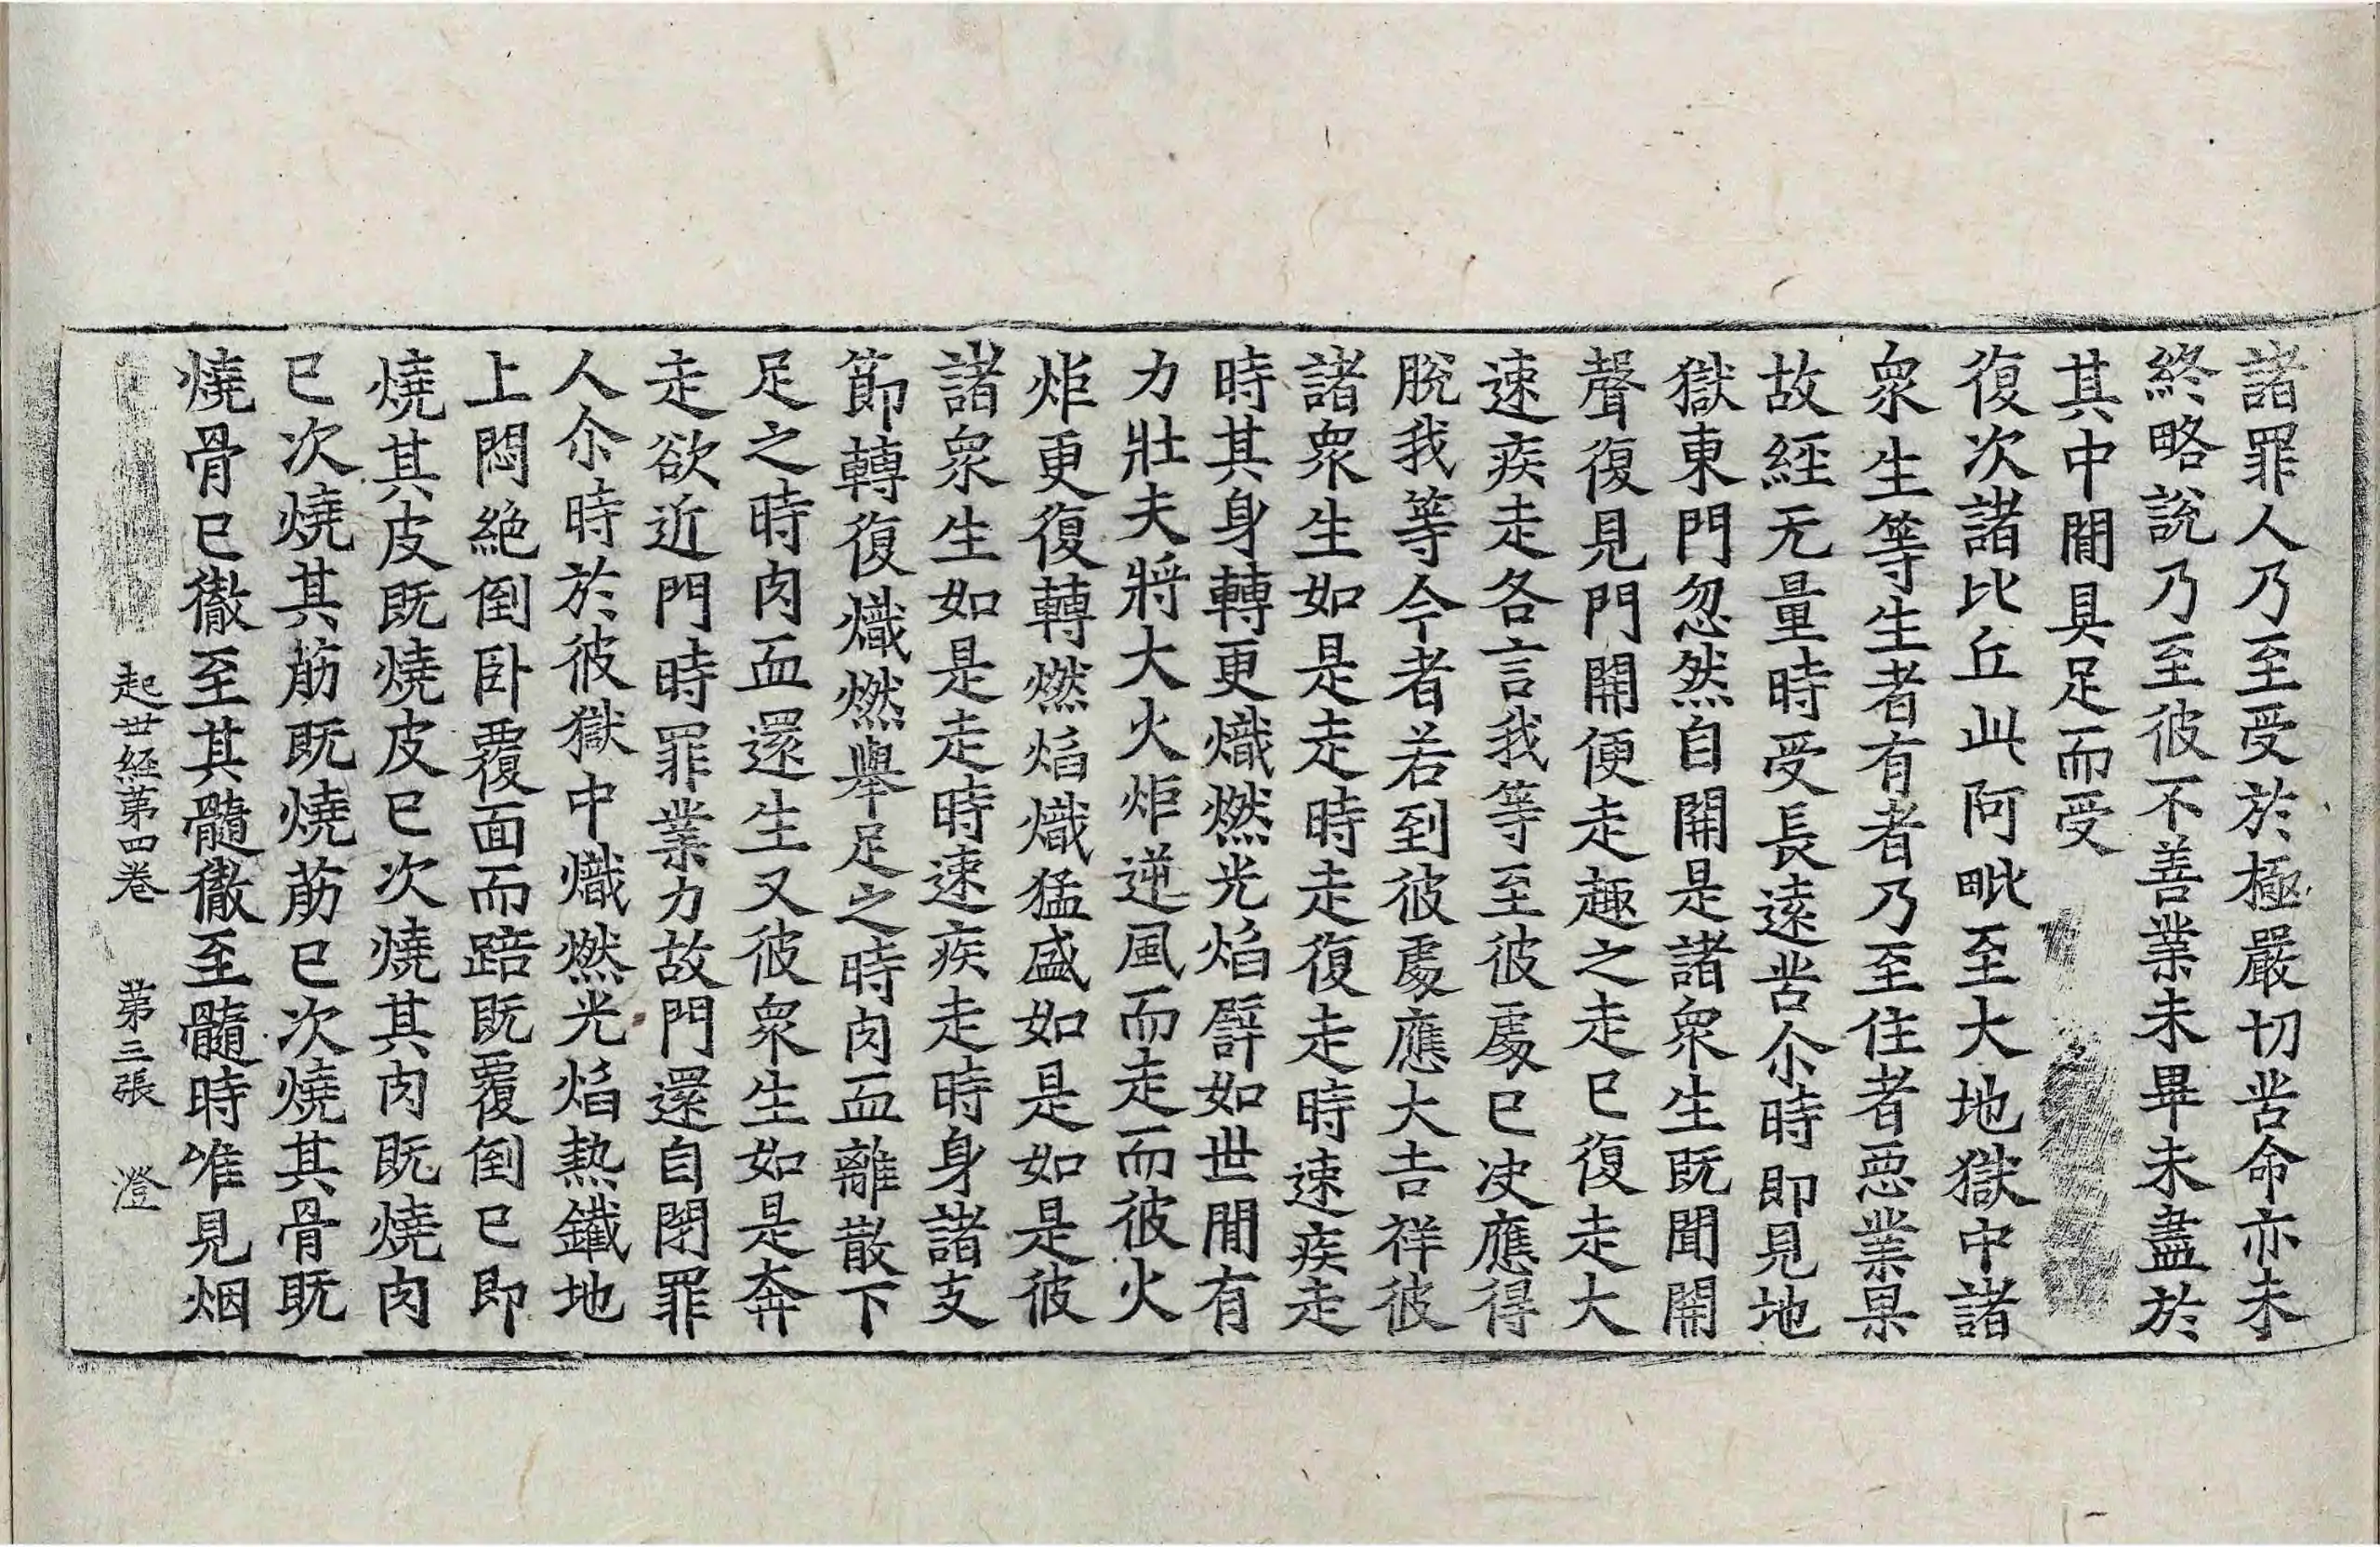 諸罪人乃至受於極嚴切苦命亦未
終略說乃至彼不善業未畢未盡於
其中間具足而受
復次諸比丘此阿毗至大地獄中諸
衆生等生者有者乃至住者惡業果
故經无量時受長遠苦尒時即見地
獄東門忽然自開是諸衆生既聞開
聲復見門開便走趣之走已復走大
速疾走各言我等至彼處已决應得
脫我等今者若到彼處應大吉祥彼
諸衆生如是走時走復走時速疾走
時其身轉更熾燃光焰譬如世間有
力壯夫將大火炬逆風而走而彼火
炬更復轉燃焰熾猛盛如是如是彼
諸衆生如是走時速疾走時身諸支
節轉復熾燃舉足之時肉血離散下
足之時肉血還生又彼衆生如是奔
走欲近門時罪業力故門還自閉罪
人尒時於彼獄中熾燃光焰熱鐵地
上悶絶倒卧覆面而踣既覆倒已即
燒其皮既燒皮已次燒其肉既燒肉
已次燒其筋既燒筋已次燒其骨既
燒骨已徹至其髓徹至髓時唯見烟
起世經第四卷 第三張 澄